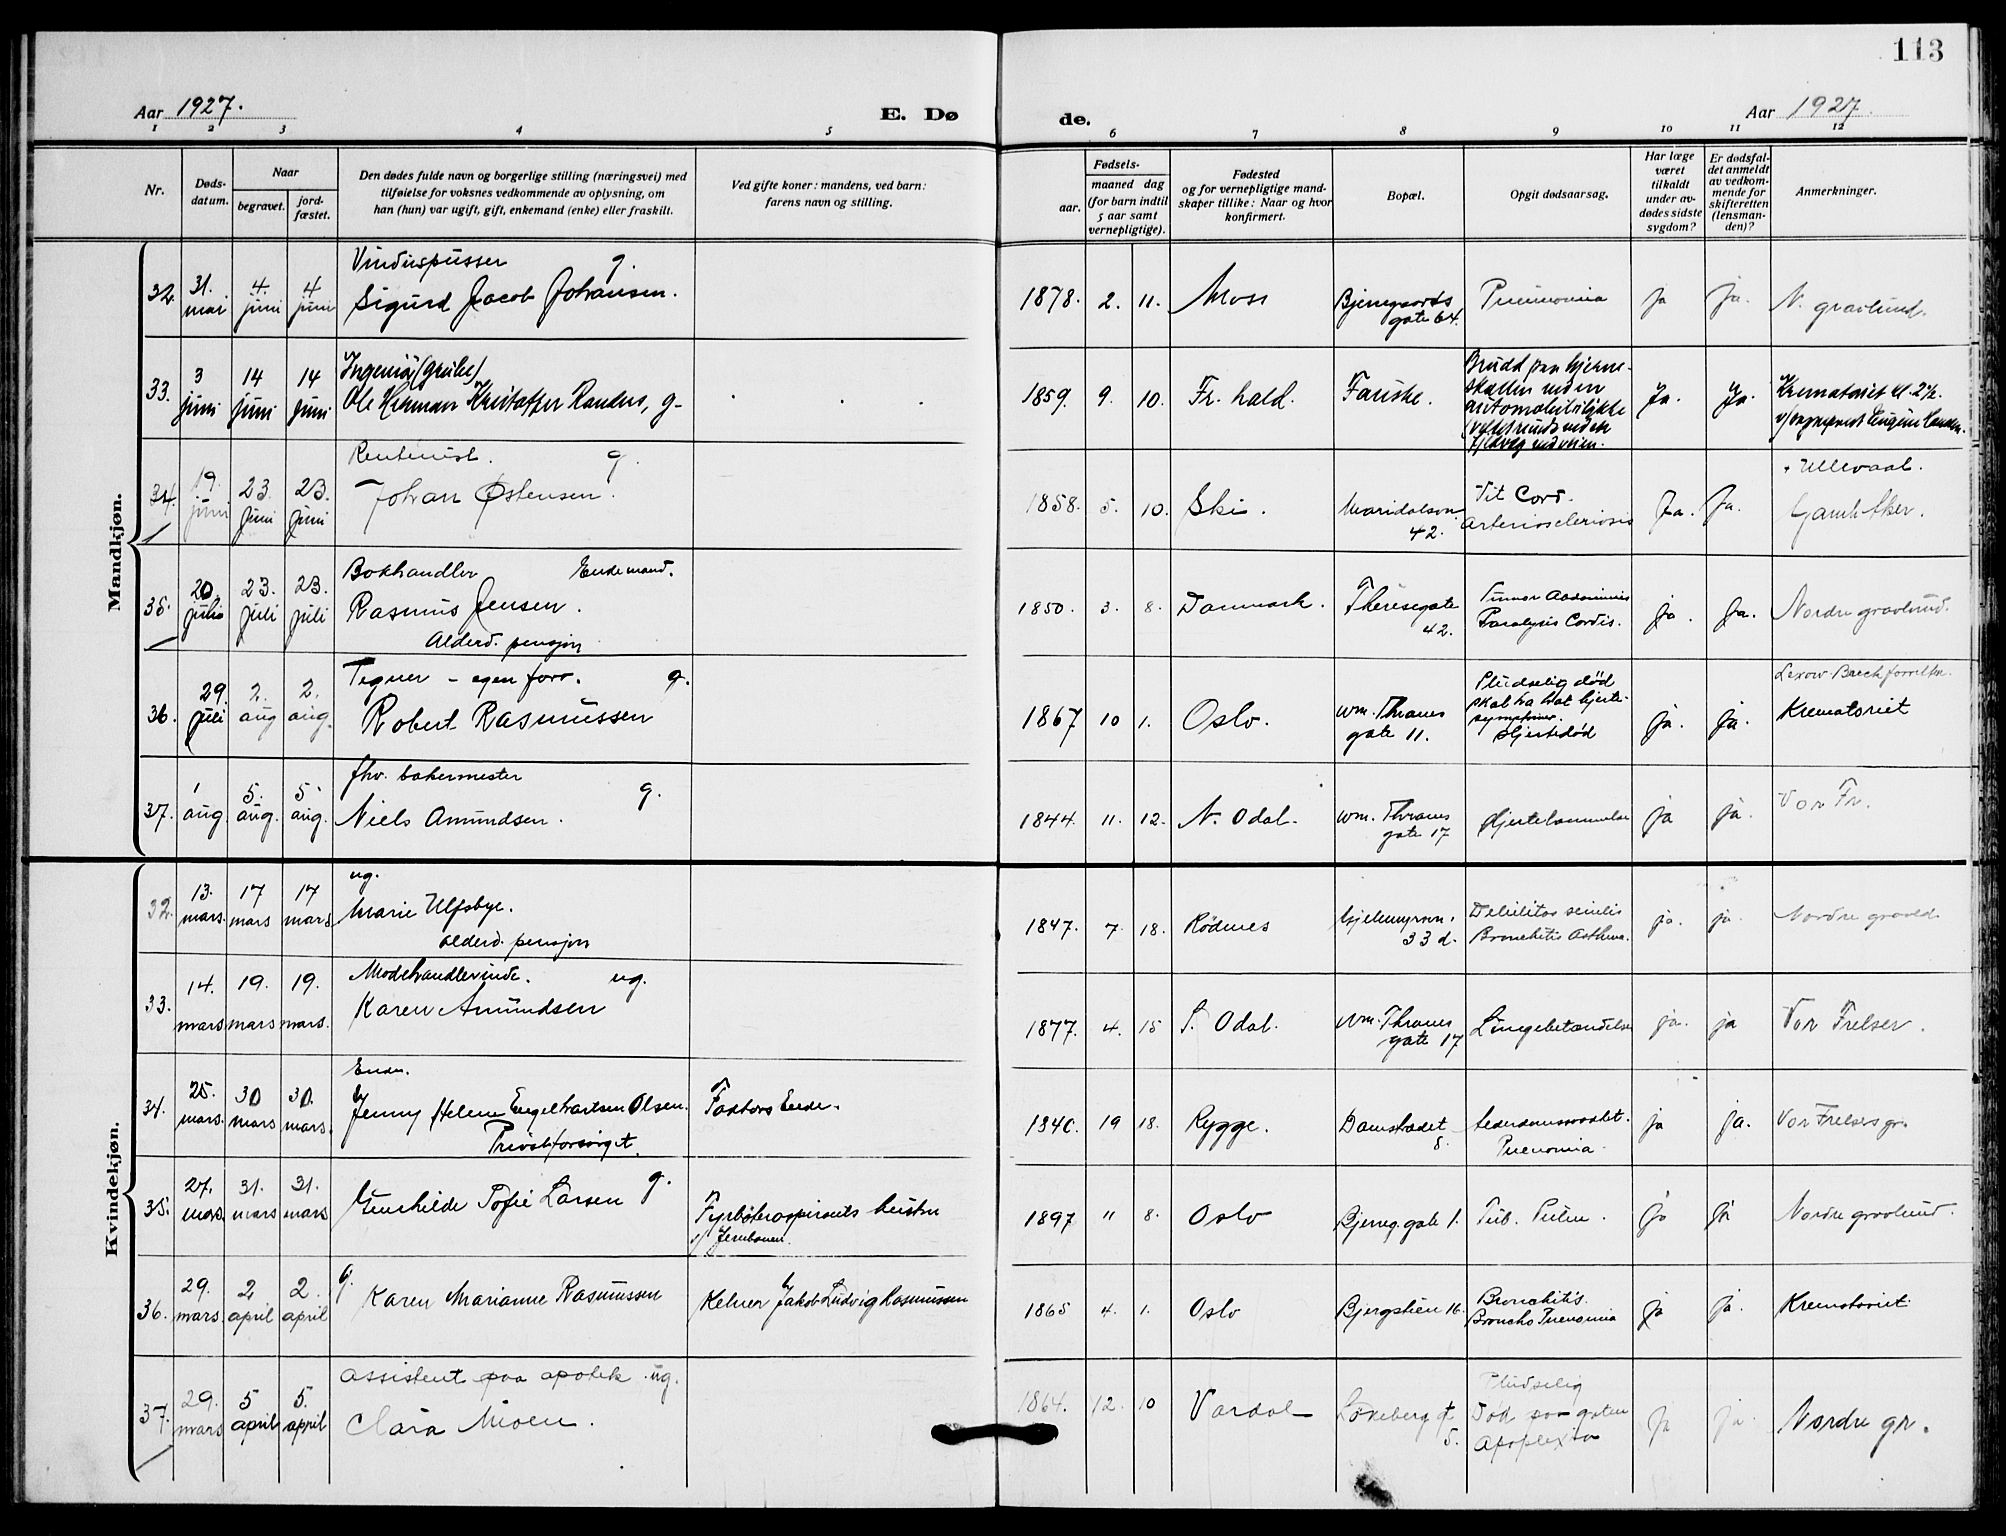 113
Aar 1927.
E. Døde.
Aar 1927.
1 2 3 4 5 6 7 8 9 10 11 12
Nr.
Døds-
datum.
Naar
begravet.
jord-
fæstet.
Den dødes fulde navn og borgerlige stilling (næringsvei) med
tilføielse for voksnes vedkommende av oplysning, om
han (hun) var ugift, gift, enkemand (enke) eller fraskilt.
Ved gifte koner: mandens, ved barn:
farens navn og stilling.
Fødsels-
aar.
maaned dag
(for barn indtil
5 aar samt
vernepligtige).
Fødested
og for vernepligtige mand-
skaper tillike: Naar og hvor
konfirmert.
Bopæl.
Opgit dødsaarsag.
Har læge
været
tilkaldt
under av-
dødes sidste
sygdom?
Er dødsfal-
det anmeldt
av vedkom-
mende for
skifteretten
(lensman-
den)?
Anmerkninger.
Mandkjøn.
32. 31. mai 4. juni 4 juni
Vinduspusser g.
Sigurd Jacob Johansen.
1878. 2. 11. Moss
Bjerregaards
gate 64.
Pneumonia
ja ja.
N. gravlund.
33. 3 juni 14 juni 14 juni
Ingeniør (grube)
Ole Herman Kristoffer Randers, g-
1859. 9. 10. Fr. hald. Fauske.
Brudd paa hjerne-
skallen ved en
automobilulykke
Ja. Ja.
Krematoriet kl. 2½.
34. 19. juni 23. juni 23. juni
Rentenist. g.
Johan Østensen.
1858. 5. 10. Ski.
Maridalsvn
42.
Vit Cord.
Arteriosclerosis
Ja. Ja.
Ullevaal.
Gamle Aker.
35. 20. juli 23. juli 23. juli
Bokhandler Enkemand.
Rasmus Jensen.
Alderd. pensjon
1850. 3. 8. Danmark.
Theresegate
42.
Tumor Abdominis
Paralysis Cordis.
ja. ja.
Nordre gravlund.
36. 29. juli 2. aug 2. aug.
Tegner - egen forr. g.
Robert Rasmussen
1867 10 1. Oslo.
Wm. Thranes
gate 11.
Pludselig død
skal ha hat hjerte-
symptomer.
Hjertedød
ja. ja.
Krematoriet
37. 1 aug 5. aug. 5. aug.
fhv. bakermester g.
Niels Amundsen.
1844. 11. 12. N. Odal.
Wm. Thranes
gate 17
Hjertelammelse
ja ja.
Vor Fr.
Kvindekjøn.
32. 13. mars. 17 mars 17 mars
ug.
Marie Ulfsbye.
Alderd. pensjon
1847. 7. 18. Rödenes
33 d.
Debilitas senilis
Bronchitis Asthma.
ja. ja.
Nordre gravld.
33. 14. mars 19. mars 19. mars.
Modehandlerinde. ug.
Karen Amundsen
1877. 4. 15 S. Odal.
Wm. Thranes
gate 17
Lungebetændelse
ja. ja
Vor Frelser.
34. 25. mars. 30 mars 30. mars.
Enke.
Jenny Helene Engelhartsen Olsen.
Privat forsørget.
Faktors Enke.
1840. 19 18. Rygge.
Damstrædet
8.
Pneumonia
ja ja.
Vor Frelsers gr.
35. 27. mars. 31. mars 31. mars
Gunhilde Sofie Larsen g.
Fyrbøteraspirants hustru
v/ Jernbanen.
1897 11 8. Oslo
Bjerreg. gate 1.
Tub. Pulm.
ja ja
Nordre gravlund.
36. 29. mars. 2 april 2. april
g. Karen Marianne Rasmussen
Kelner Jakob Ludvig Rasmussen
1865 4. 1. Oslo
Bjergstien 16.
Bronchitis.
Broncho Pneumonia
ja ja.
Krematoriet.
37. 29. mars 5 april 5. april
Assistent paa apotek. ug.
Clara Moen.
1864. 12. 10 Vardal
Løkeberg gt
5.
Pludselig
Død paa gaten
Apoplexia
ja ja.
Nordre gr.